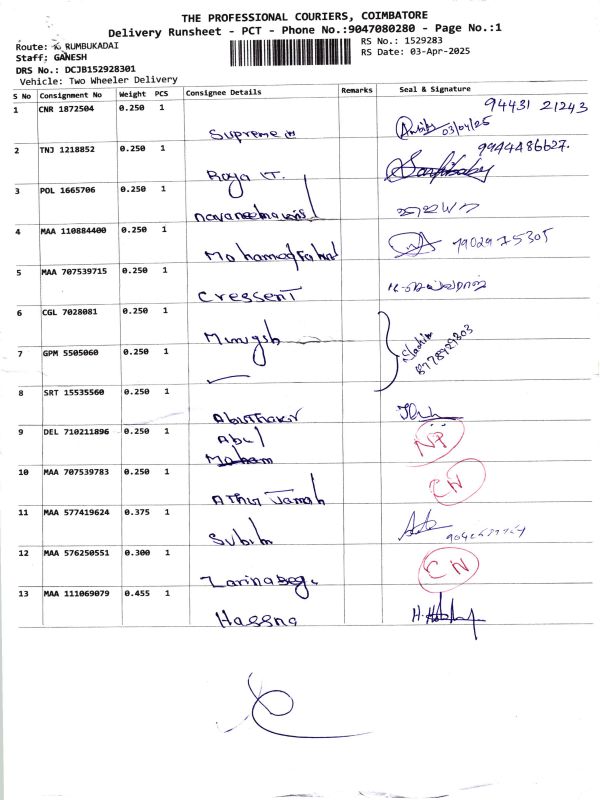 THE PROFESSIONAL COURIERS, COIMBATORE
Delivery Runsheet - PCT - Phone No.:9047080280 - Page No.:1
Route: K RUMBUKADAI
RS No.: 1529283
Staff; GANESH
RS Date: 03-Apr-2025
DRS No.: DCJB152928301
Vehicle: Two Wheeler Delivery
S No Consignment No Weight PCS Consignee Details Remarks Seal & Signature
1 CNR 1872504 0.250 1 Supreme 94431 21243
03/04/25
2 TNJ 1218852 0.250 1 Raja V.T. 9944486627.
3 POL 1665706 0.250 1
4 MAA 110884400 0.250 1 7902975305
5 MAA 707539715 0.250 1 Cressent
6 CGL 7028081 0.250 1
7 GPM 5505060 0.250 1
8 SRT 15535560 0.250 1 Abuthakir
9 DEL 710211896 0.250 1 Abul NP
10 MAA 707539783 0.250 1 Athur Jamah CN
11 MAA 577419624 0.375 1 Subin
12 MAA 576250551 0.300 1 CN
13 MAA 111069079 0.455 1 Hassna